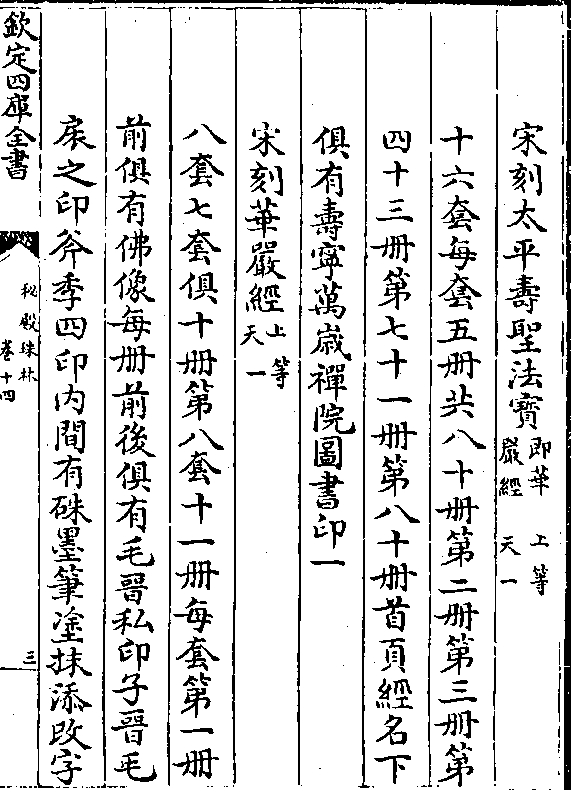 宋刻太平壽聖法寶即華嚴經 上等天一
十六套每套五册共八十册第二册第三册第
四十三册第七十一册第八十册首頁經名下
俱有壽寧萬歳禪院圖書印一
宋刻華嚴經上等天一
八套七套俱十册第八套十一册每套第一册
前俱有佛像每册前後俱有毛晉私印子晉毛
扆之印斧季四印内間有硃墨筆塗抹添改字
欽定四庫全書
秘殿珠林
卷十四
三